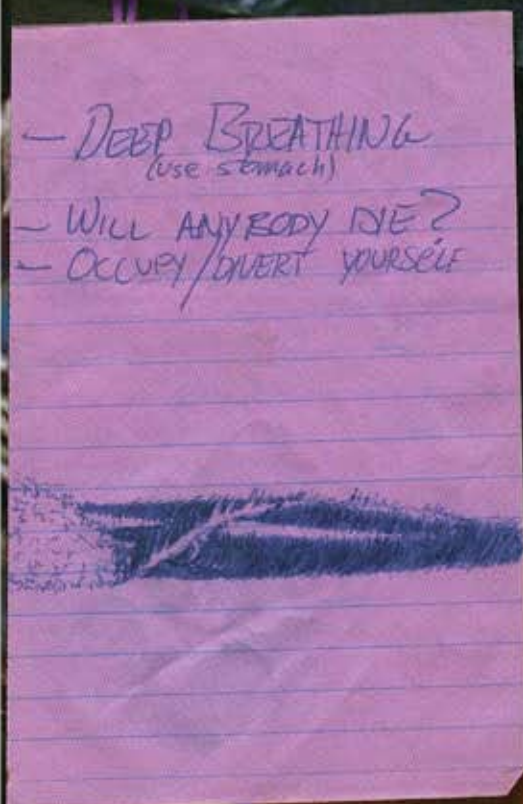 - DEEP BREATHING
(use stomach)
- WILL ANYBODY DIE?
- OCCUPY/DIVERT YOURSELF